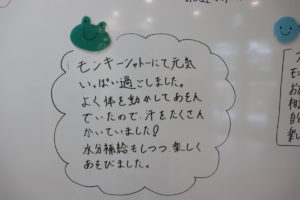 モンキーシャトーにて元気
いっぱい過ごしました。
よく体を動かしてあそん
でいたので、汗をたくさん
かいていました!
水分補給もしつつ、楽しく
あそびました。